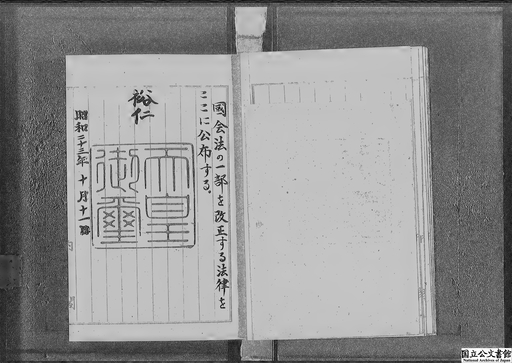 國会法の一部を改正する法律を
ここに公布する。
裕仁
天皇
御璽
昭和二十三年 十月十一日
国立公文書館
National Archives of Japan